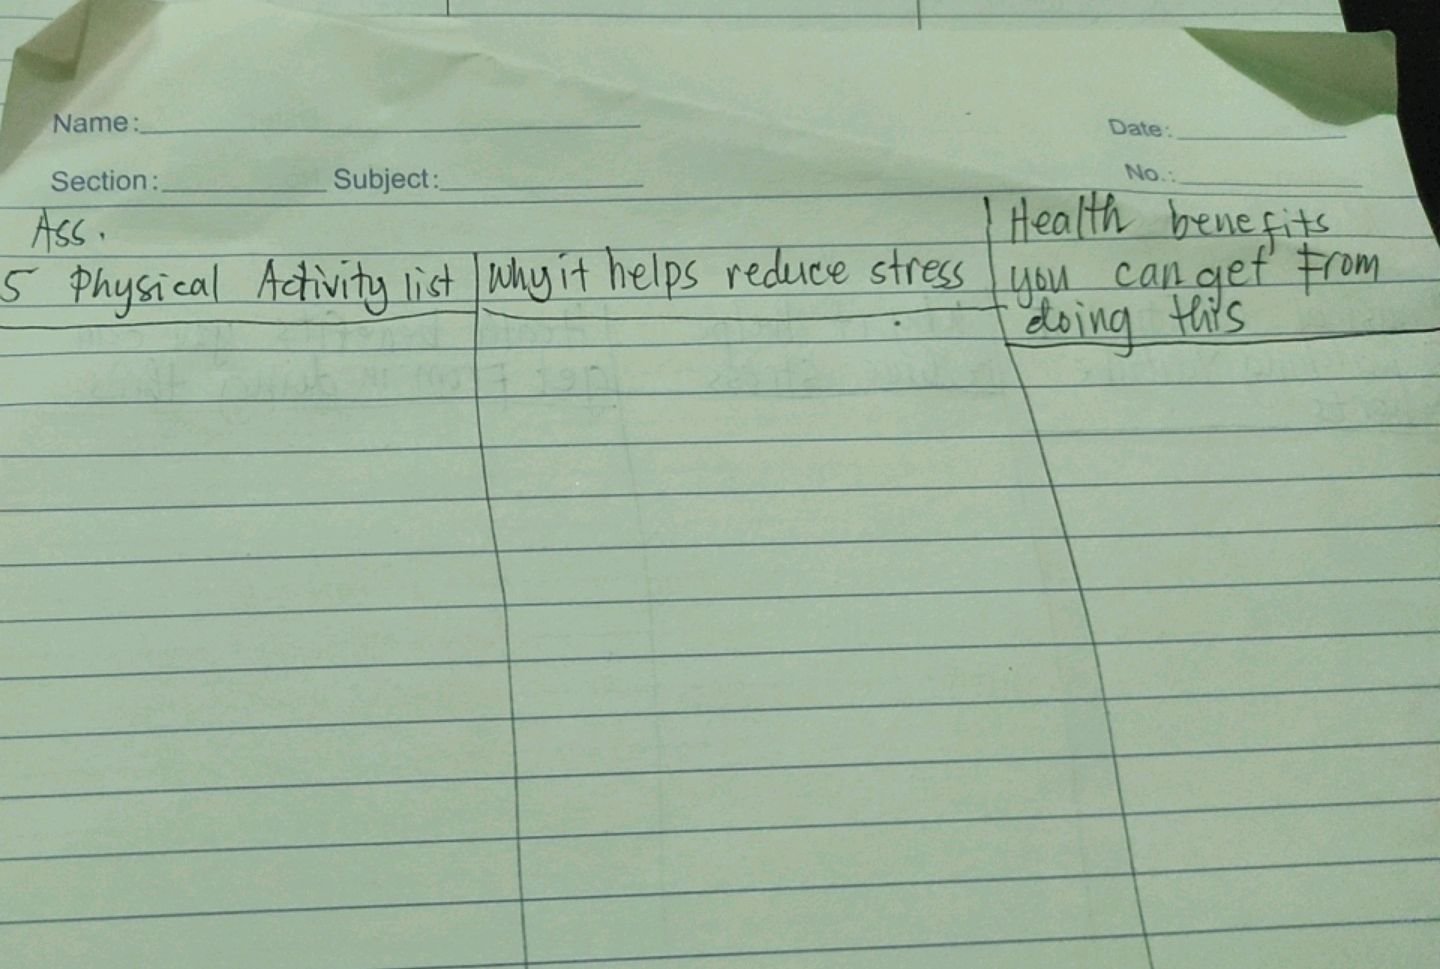 Name: Date:
Section: Subject: No.:
Ass.
5 Physical Activity list
Why it helps reduce stress
Health benefits
you can get From
doing this